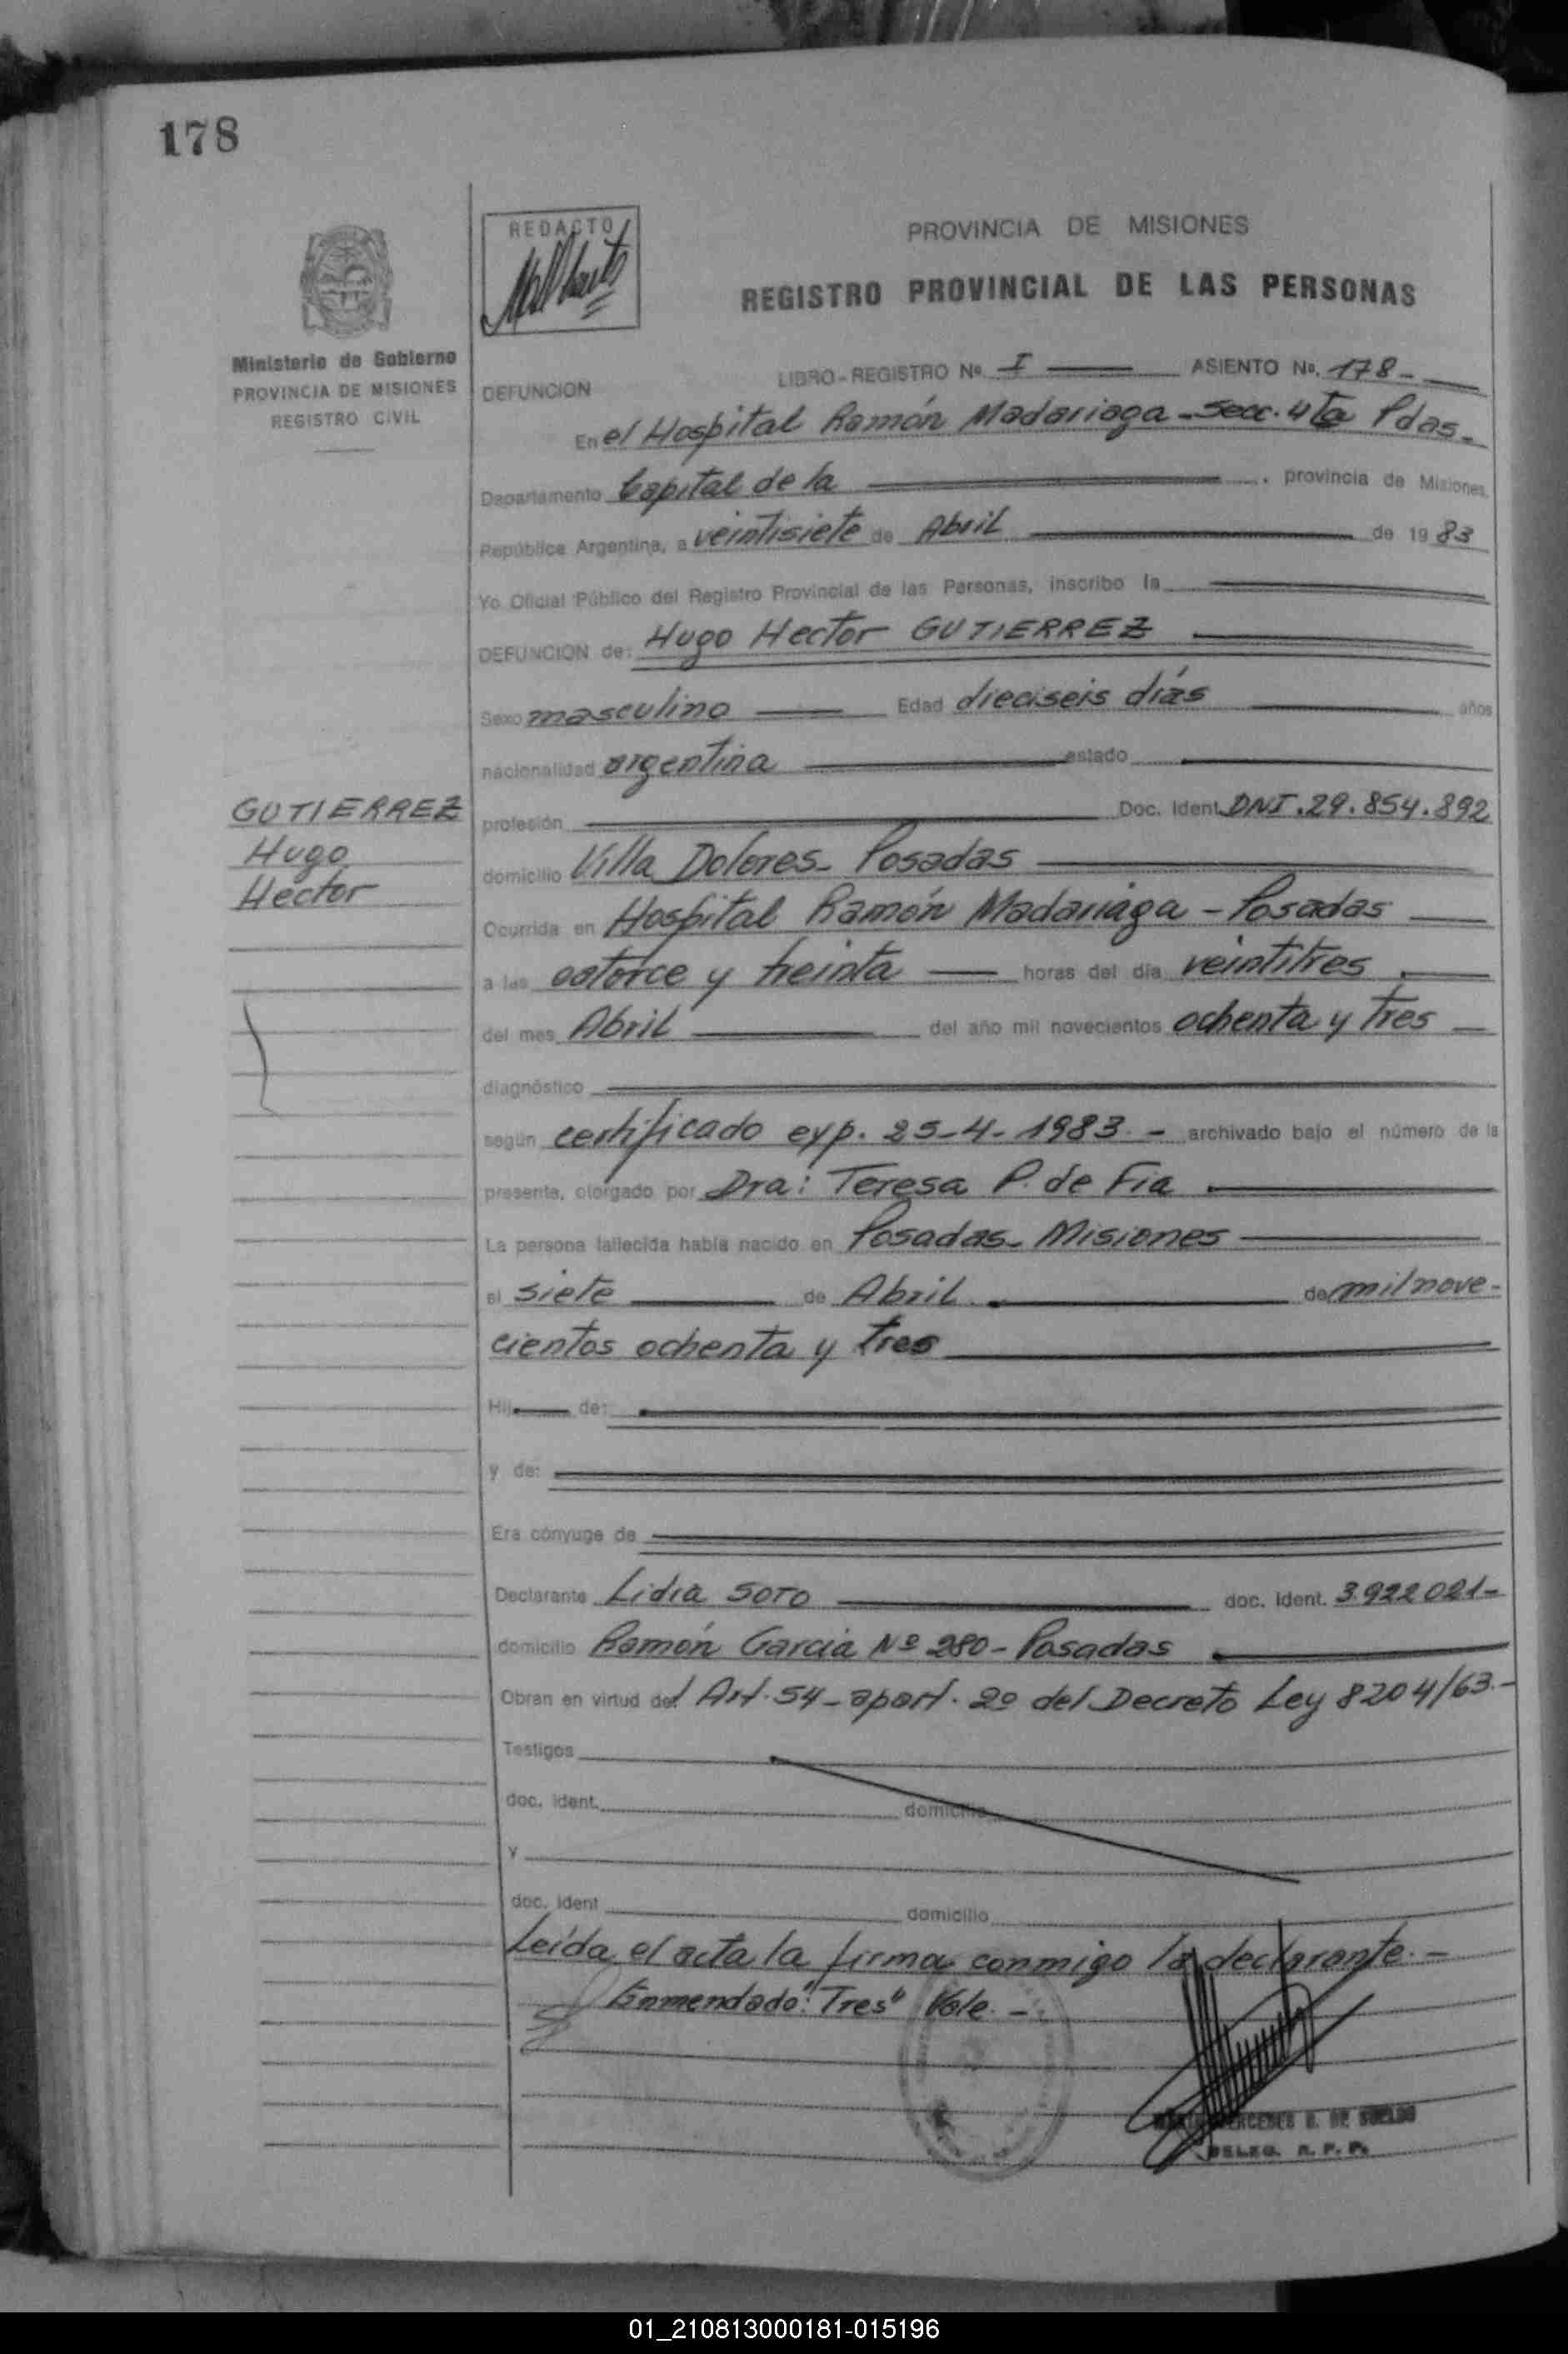 178
REDACTO
PROVINCIA DE MISIONES
REGISTRO PROVINCIAL DE LAS PERSONAS
Ministerio de Gobierno
PROVINCIA DE MISIONES
REGISTRO CIVIL
DEFUNCION LIBRO-REGISTRO Nº I ASIENTO No. 178-
En el Hospital Ramón Madariaga - Secc. 4ta Pdas.
Departamento Capital de la provincia de Misiones,
República Argentina, a veintisiete de Abril de 1983
Yo Oficial Público del Registro Provincial de las Personas, inscribo la
DEFUNCION de: Hugo Hector GUTIERREZ
Sexo masculino Edad dieciseis días años
nacionalidad argentina estado
GUTIERREZ
Hugo
Hector
profesión Doc. Ident. DNI. 29.854.892
domicilio Villa Dolores- Posadas
Ocurrida en Hospital Ramón Madariaga - Posadas
a las catorce y treinta horas del día veintitres
del mes Abril del año mil novecientos ochenta y tres
diagnóstico
según certificado exp. 25-4-1983.- archivado bajo el número de la
presente, otorgado por Dra: Teresa P. de Fia
La persona fallecida había nacido en Posadas- Misiones
el siete de Abril de mil nove-
cientos ochenta y tres
Hij de:
y de:
Era cónyuge de
Declarante Lidia SOTO doc. ident. 3.922.021-
domicilio Ramón Garcia Nº 280 - Posadas
Obran en virtud del Art. 54 - apart. 2º del Decreto Ley 8204/63.-
Testigos
doc. ident. domicilio
y
doc. ident domicilio
Leída el acta la firma conmigo la declarante.-
Enmendado: "Tres" Vale.-
MERCEDES DE
DELEG. R. P. P.
01_210813000181-015196